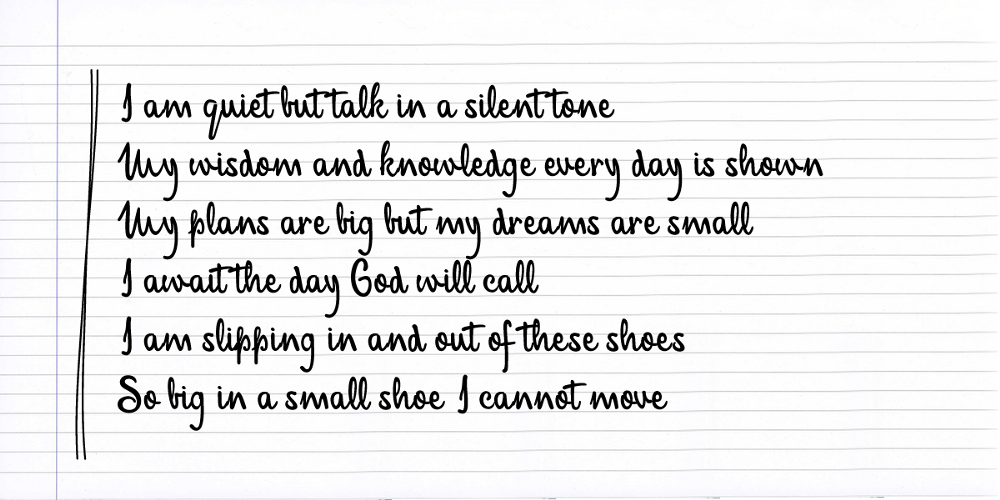 I am quiet but talk in a silent tone
My wisdom and knowledge every day is shown
My plans are big but my dreams are small
I await the day God will call
I am slipping in and out of these shoes
So big in a small shoe I cannot move